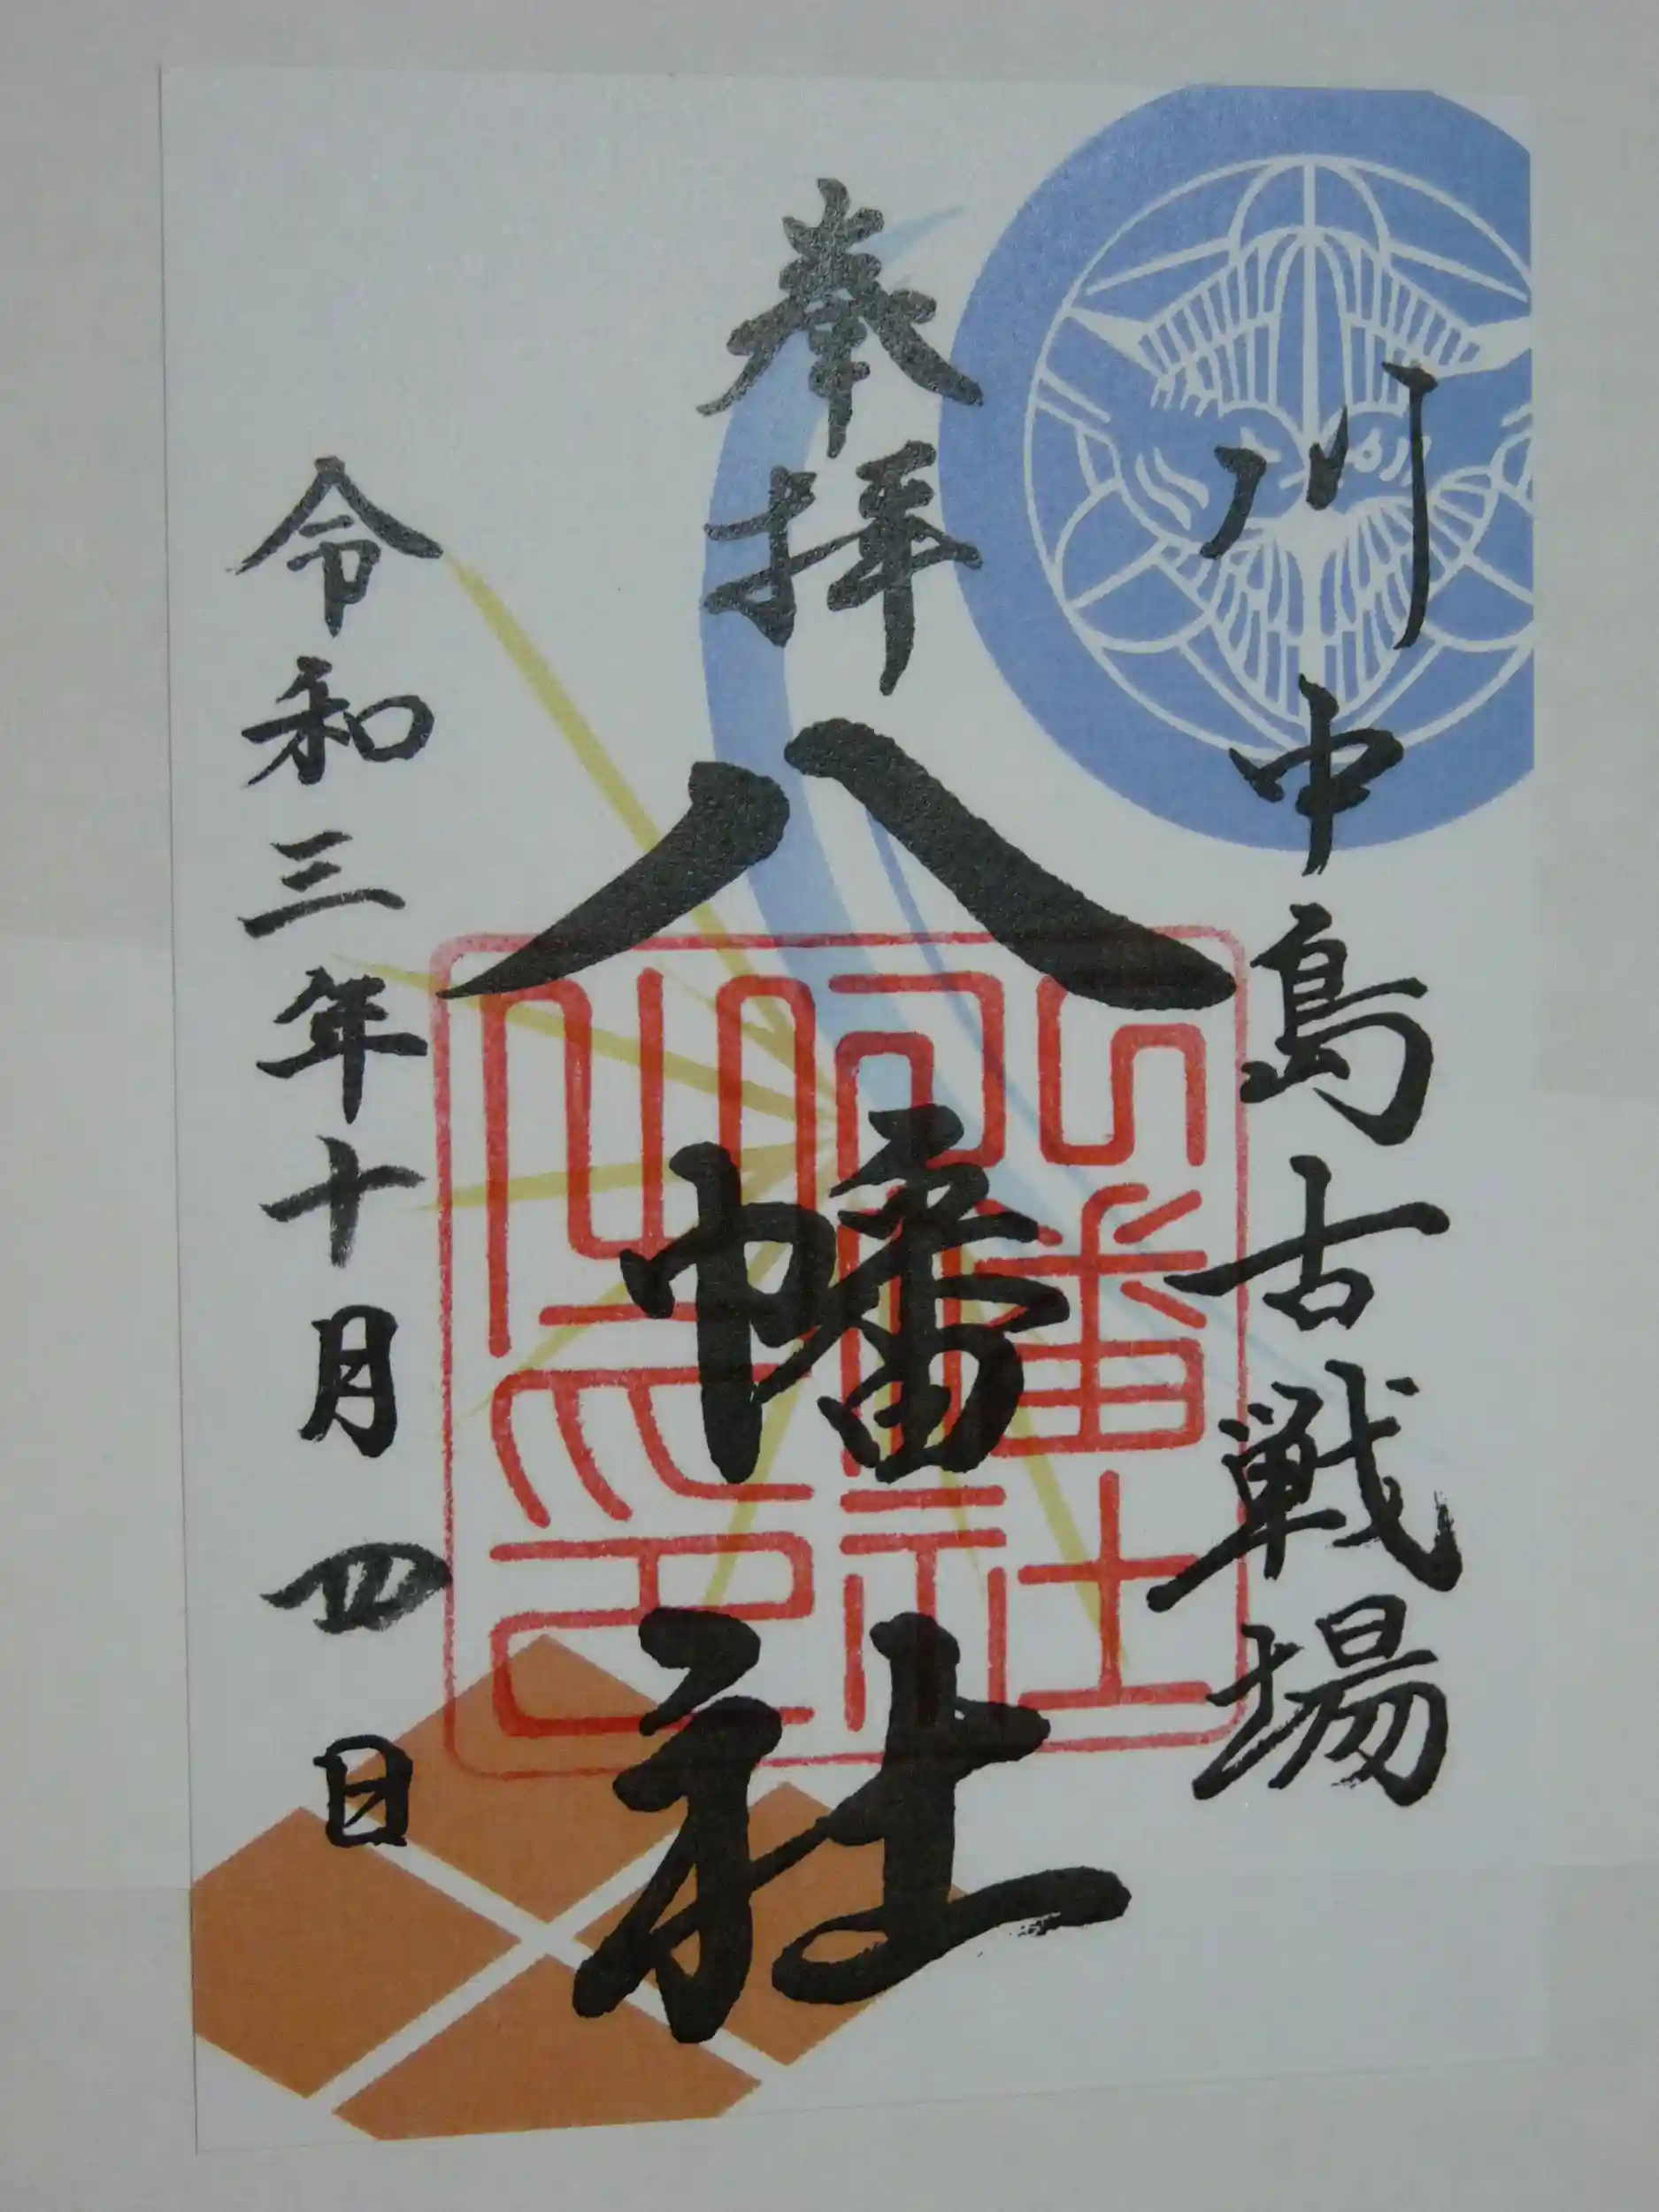 川中島古戦場
奉拝
八幡社
令和三年十月四日